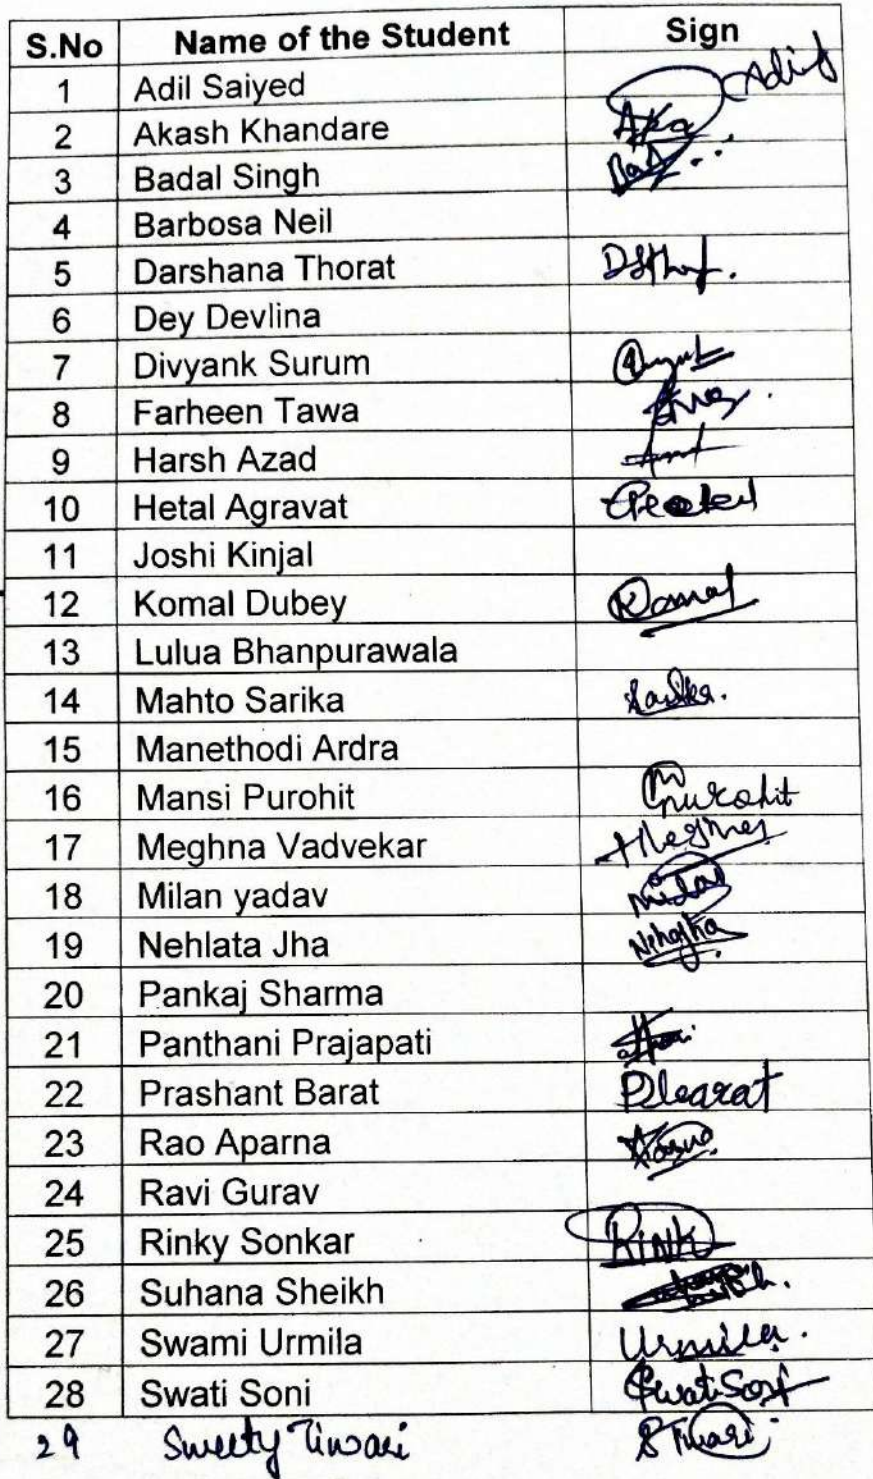 S.No Name of the Student Sign
1 Adil Saiyed Adil
2 Akash Khandare
3 Badal Singh
4 Barbosa Neil
5 Darshana Thorat
6 Dey Devlina
7 Divyank Surum
8 Farheen Tawa
9 Harsh Azad
10 Hetal Agravat
11 Joshi Kinjal
12 Komal Dubey Komal
13 Lulua Bhanpurawala
14 Mahto Sarika Sarika.
15 Manethodi Ardra
16 Mansi Purohit MPurohit
17 Meghna Vadvekar
18 Milan yadav Milan
19 Nehlata Jha
20 Pankaj Sharma
21 Panthani Prajapati
22 Prashant Barat
23 Rao Aparna
24 Ravi Gurav
25 Rinky Sonkar
26 Suhana Sheikh
27 Swami Urmila Urmila.
28 Swati Soni Swati Soni
29 Sweety Tiwari S Tiwari